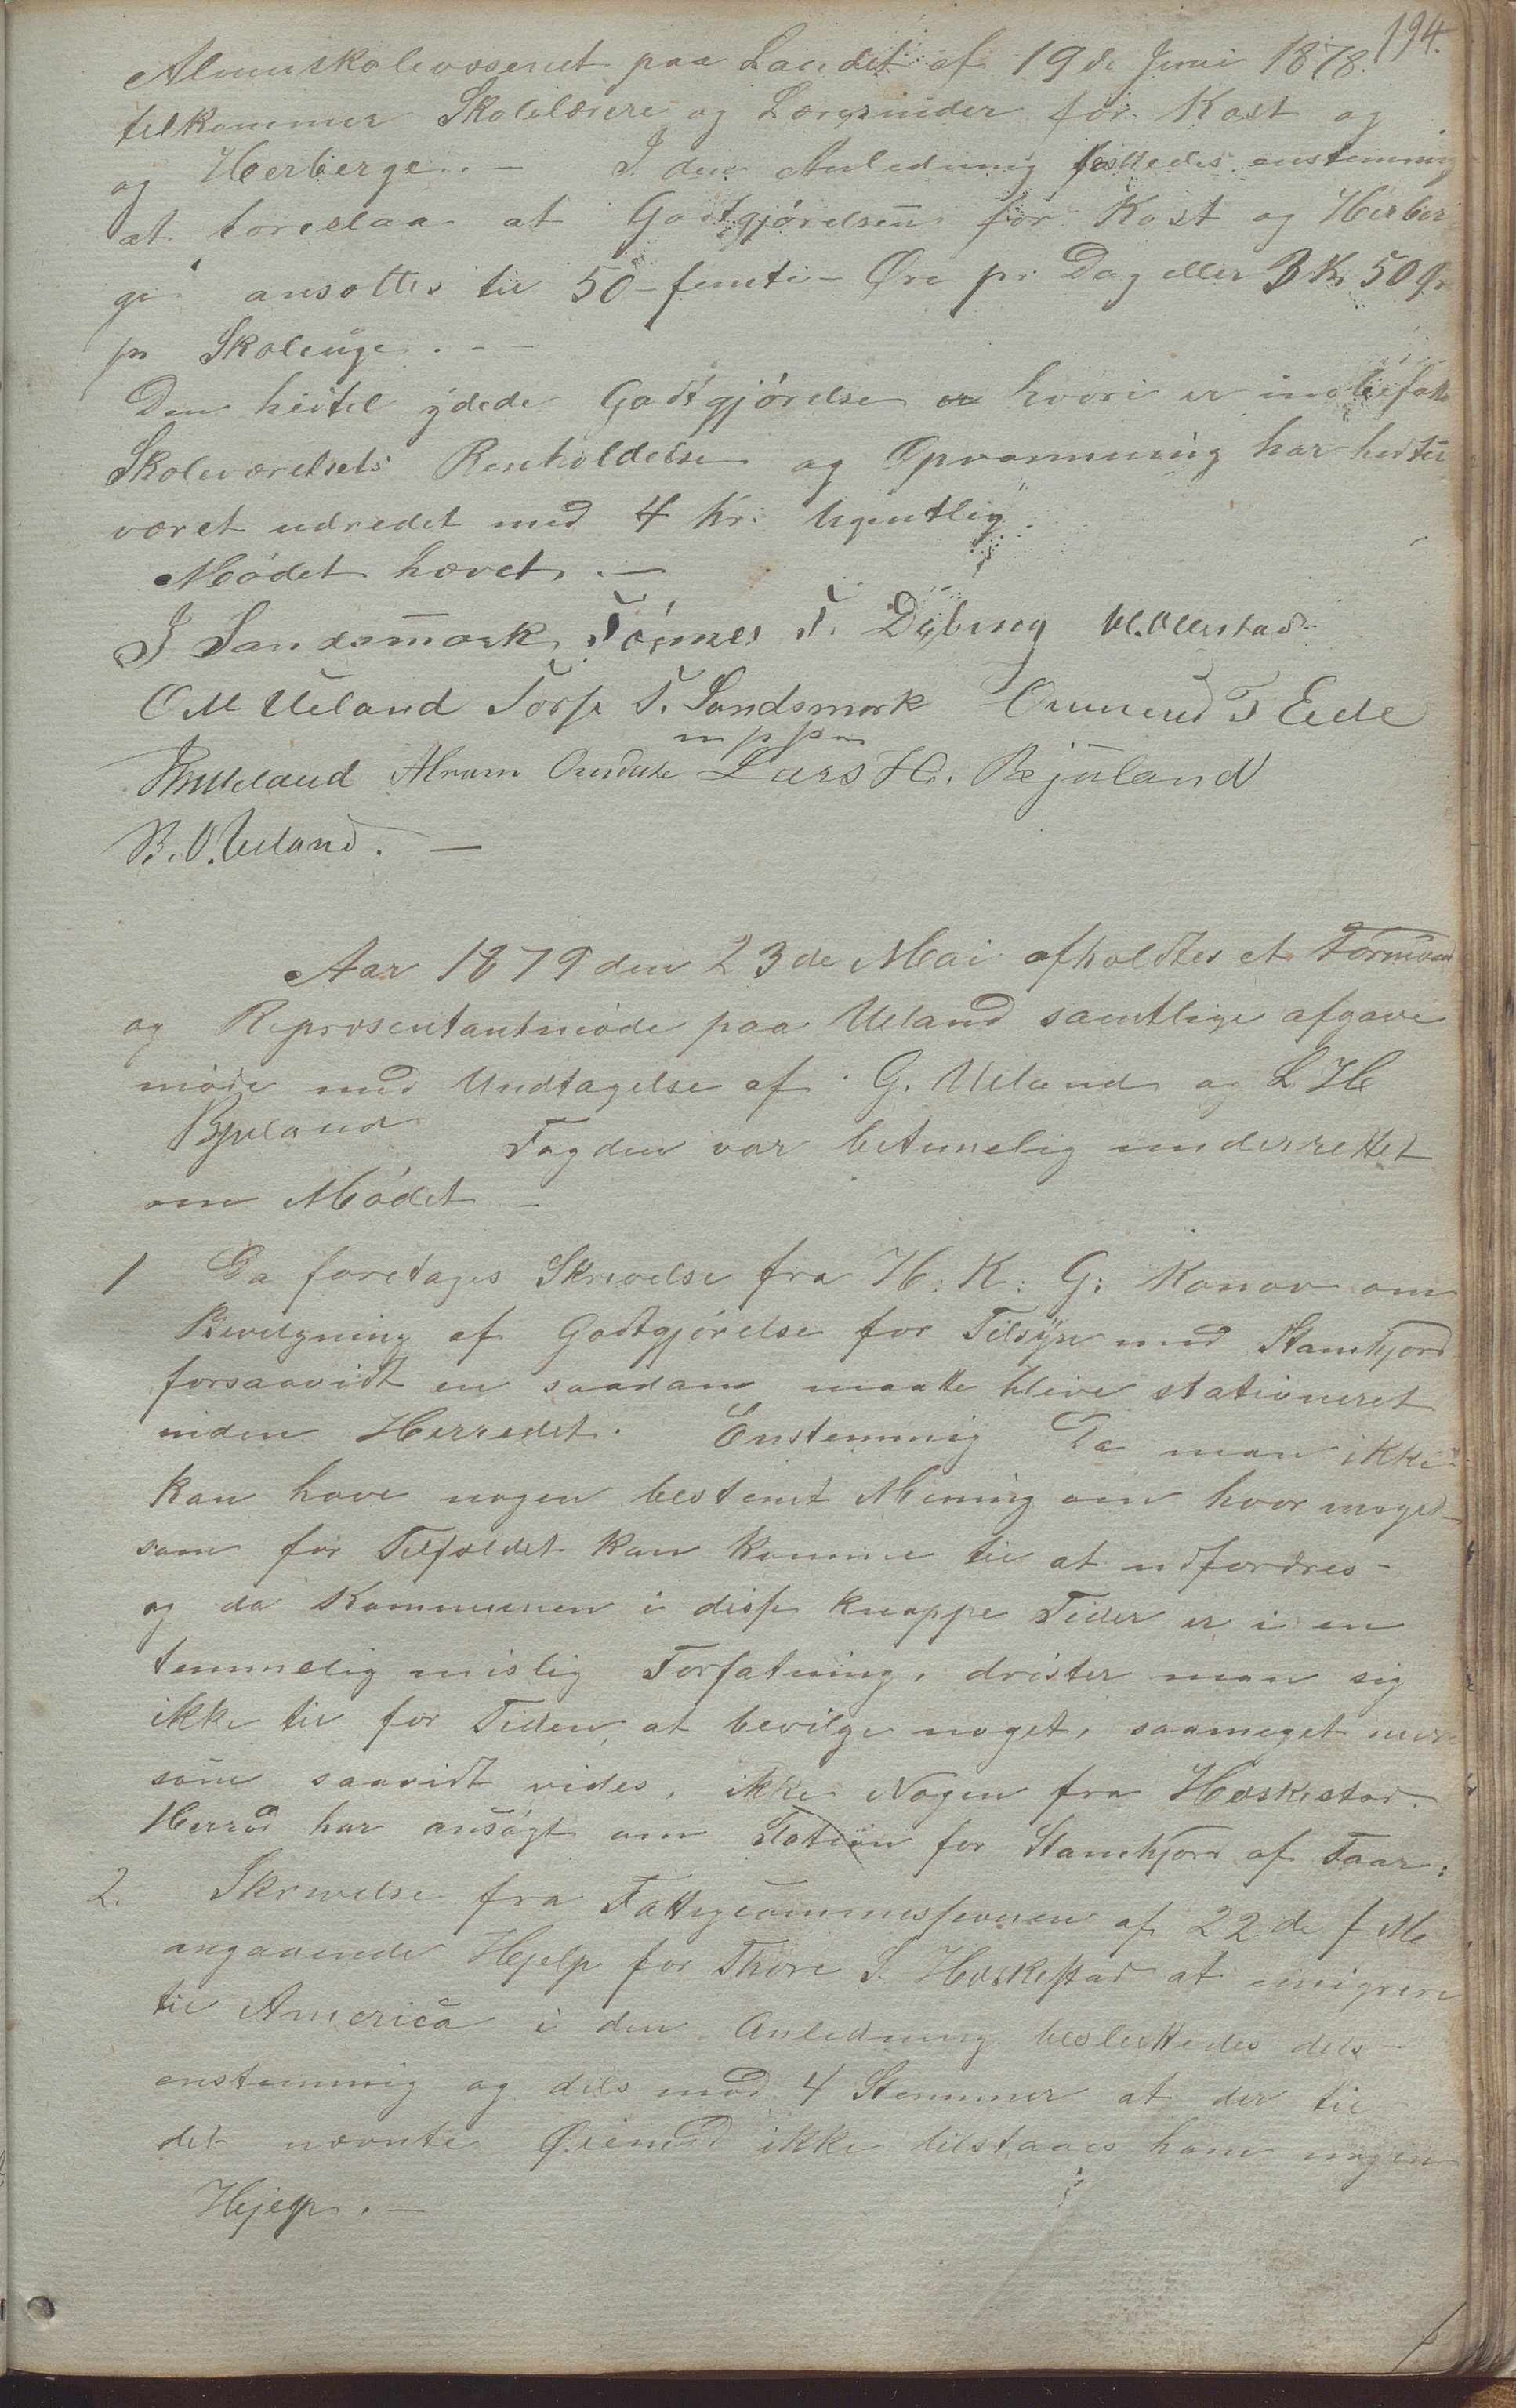 194.
Almuskolevæsenet paa Landet af 19de Juni 1878.
tilkommer Skolelærere og Lærerinder for Kost og
og Herberge. — I den Anledning fattedes enstemmig
at foreslaa at Godtgjørelsen for Kost og Herber
ge ansættes til 50 - femti - Øre pr. Dag eller 3 Kr 50 Øre
pr Skoleuge. —
Den hidtil ydede Godtgjørelse hvori er indbefatte
Skoleværelsets Renholdelse og Opvarmning har hidtil
været udredet med 4 Kr. Ugentlig.
Mødet hævet. —
J Sandsmark Tønnes T. Dybing
O M Ueland Torje T. Sandsmark Ommund T Eide
m p p
Ueland Abram Lars H. Bjuland
B. O. Ueland. —
Aar 1879 den 23de Mai afholdtes et Formand
og Repræsentantmøde paa Ueland samtlige afgave
møde med Undtagelse af G. Ueland og L H
Bjuland Fogden var betimelig underrettet
om Mødet —
1 Da foretages Skrivelse fra H: K: G: Konov om
Bevilgning af Godtgjørelse for Tilsyn med Stamhjord
forsaavidt en saadan maatte blive stationeret
inden Herredet. Enstemmig Da man ikke
kan have nogen bestemt Mening om hvor meget
som for Tilfældet kan komme til at udfordres -
og da Kommunen i disse knappe Tider er i en
temmelig mislig Forfatning, drister man sig
ikke til for Tiden, at bevilge noget, saameget mere
som saavidt vides, ikke Nogen fra Heskestad
Herred har ansøgt om Station for Stamhjord af Faar:
2. Skrivelse fra Fattigcommissionen af 22de f M
angaaende Hjelp for Thore S. Heskestad at emigrere
til America i den Anledning besluttedes dels
enstemmig og dels mod 4 Stemmer at der til
det nævnte Øiemed ikke tilstaaes ham nogen
Hjelp. —